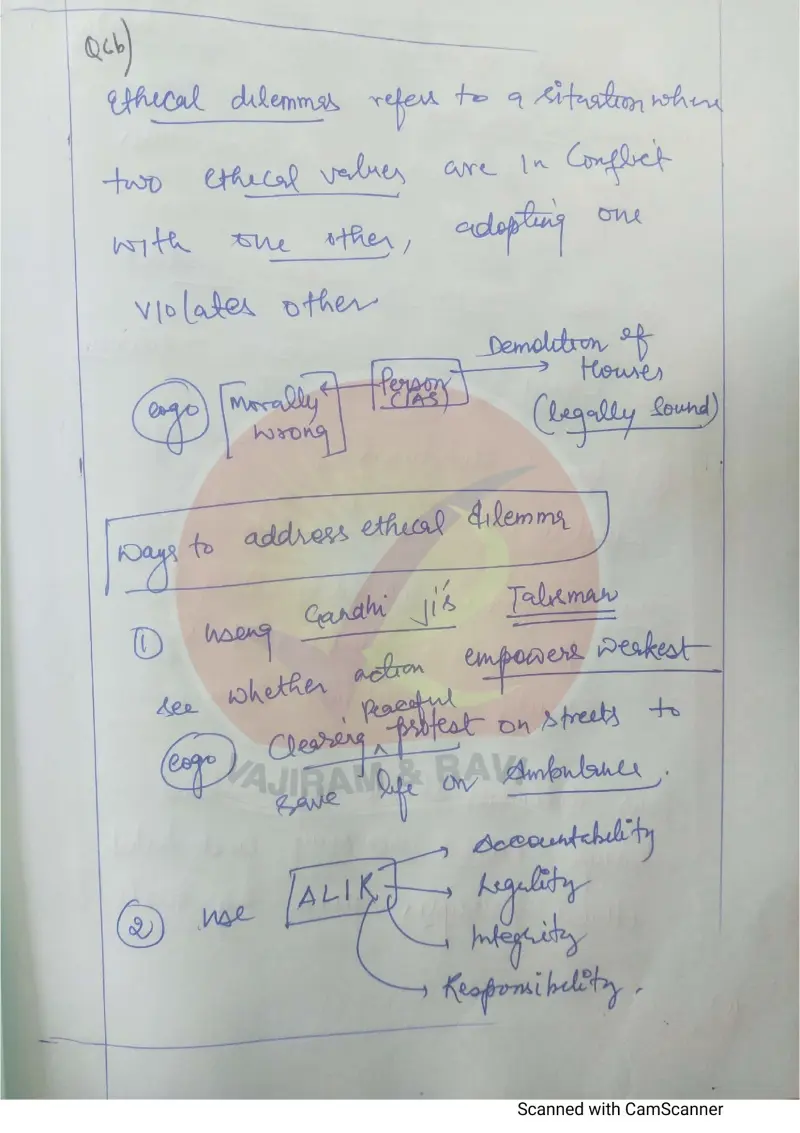 Q6b)
Ethecal dilemmas refers to a situation where
two ethecal values are in Conflict
with one other, adopting one
violates other
Demolition of
Houses
(legally sound)
Person
(IAS)
Morally
wrong
eogo
Ways to address ethecal dilemma
① using Gandhi ji's Talisman
see whether action empowers weakest
eogo Clearing peaceful protest on streets to
save life on Ambulance.
VAJIRAM & RAVI
② use ALIR
Accountability
Legality
Integrity
Responsibility.
Scanned with CamScanner